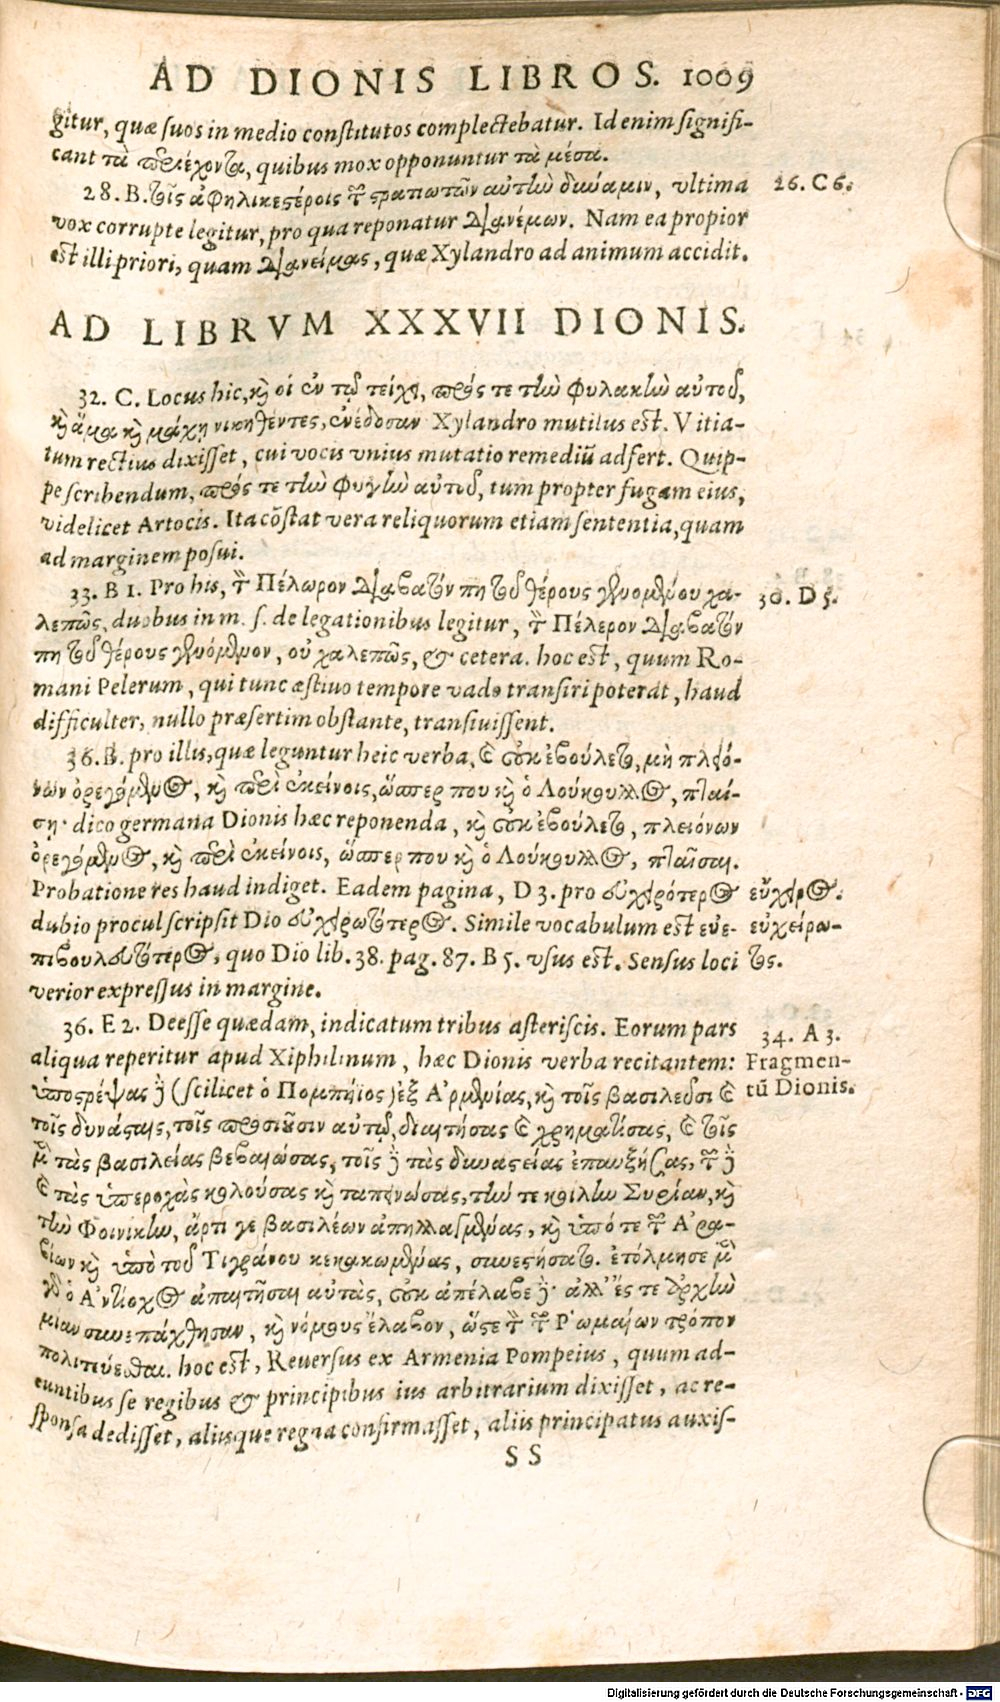 AD DIONIS LIBROS. 1009
gitur, quæ suos in medio constitutos complectebatur. Id enim signifi-
cant τὰ περιέχοντα, quibus mox opponuntur τὰ μέσα.
28. B. τοῖς ἀφηλικεστέροις τῶν στρατιωτῶν αὐτὴν δύναμιν, ultima
26. C 6.
vox corrupte legitur, pro qua reponatur διανέμων. Nam ea propior
est illi priori, quam διανείμας, quæ Xylandro ad animum accidit.
AD LIBRVM XXXVII DIONIS.
32. C. Locus hic, καὶ οἱ ἐν τῷ τείχει, πρός τε τὴν φυλακὴν αὐτοῦ,
καὶ ἅμα καὶ μάχῃ νικηθέντες, ἐνέδοσαν Xylandro mutilus est. Vitia-
tum rectius dixisset, cui vocis vnius mutatio remediũ adfert. Quip-
pe scribendum, πρός τε τὴν φυγὴν αὐτοῦ, tum propter fugam eius,
videlicet Artocis. Ita cõstat vera reliquorum etiam sententia, quam
ad marginem posui.
33. B 1. Pro his, τὸν Πέλωρον διαβατὸν πῃ τοῦ θέρους γενομένου χα-
30. D 5.
λεπῶς, duobus in m. s. de legationibus legitur, τὸν Πέλερον διαβατόν
πῃ τοῦ θέρους γενόμενον, οὐ χαλεπῶς, & cetera. hoc est, quum Ro-
mani Pelerum, qui tunc æstiuo tempore vado transiri poterat, haud
difficulter, nullo præsertim obstante, transiuissent.
36. B. pro illis, quæ leguntur heic verba, καὶ οὐκ ἐβούλετο, μὴ πλειό-
νων ὀρεγόμενος, καὶ περὶ ἐκείνοις, ὥσπερ που καὶ ὁ Λούκουλλος, πταί-
σῃ· dico germana Dionis hæc reponenda, καὶ οὐκ ἐβούλετο, πλειόνων
ὀρεγόμενος, καὶ περὶ ἐκείνοις, ὥσπερ που καὶ ὁ Λούκουλλος, πταῖσαι.
Probatione res haud indiget. Eadem pagina, D 3. pro εὐχειρότερος
εὔχειρος.
dubio procul scripsit Dio εὐχειρωτότερος. Simile vocabulum est εὐε-
εὐχείρω-
πιβουλευτότερος, quo Dio lib. 38. pag. 87. B 5. vsus est. Sensus loci
τος.
verior expressus in margine.
36. E 2. Deesse quædam, indicatum tribus asteriscis. Eorum pars
34. A 3.
aliqua reperitur apud Xiphilinum, hæc Dionis verba recitantem:
Fragmen-
ὑποστρέψας δὲ (scilicet ὁ Πομπήϊος) ἐξ Ἀρμενίας, καὶ τοῖς βασιλεῦσι καὶ
tũ Dionis.
τοῖς δυνάσταις, τοῖς προσιοῦσιν αὐτῷ, διαιτήσας καὶ χρηματίσας, καὶ τοῖς
μὲν τὰς βασιλείας βεβαιώσας, τοῖς δὲ τὰς δυναστείας ἐπαυξήσας, τῶν δὲ
καὶ τὰς ὑπεροχὰς κολούσας καὶ ταπεινώσας, τήν τε κοίλην Συρίαν, καὶ
τὴν Φοινίκην, ἄρτι γε βασιλέων ἀπηλλαγμένας, καὶ ὑπό τε τῶν Ἀρα-
βίων καὶ ὑπὸ τοῦ Τιγράνου κεκακωμένας, συνεστήσατο. ἐτόλμησε μὲν
γὰρ ὁ Ἀντίοχος ἀπαιτῆσαι αὐτὰς, οὐκ ἀπέλαβε δέ· ἀλλ' ἔς τε ἀρχὴν
μίαν συνεπάχθησαν, καὶ νόμους ἔλαβον, ὥστε τὸν τῶν Ῥωμαίων τρόπον
πολιτεύεσθαι. hoc est, Reuersus ex Armenia Pompeius, quum ad-
euntibus se regibus & principibus ius arbitrarium dixisset, ac re-
sponsa dedisset, aliisque regna confirmasset, aliis principatus auxis-
SS
Digitalisierung gefördert durch die Deutsche Forschungsgemeinschaft - DFG